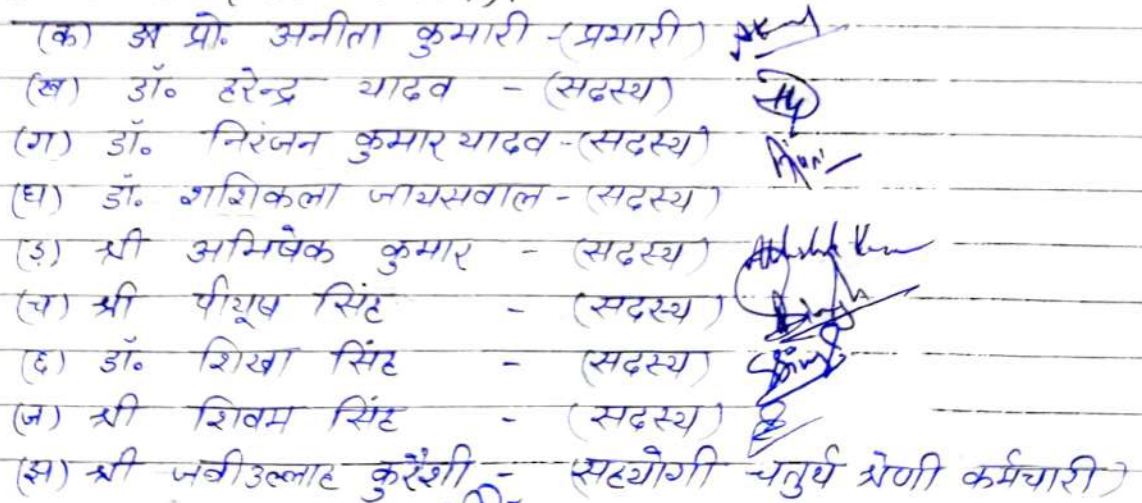 (क) प्रो. अनीता कुमारी - (प्रभारी)
(ख) डॉ० हरेन्द्र यादव - (सदस्य)
(ग) डॉ० निरंजन कुमार यादव - (सदस्य)
(घ) डॉ. शशिकला जायसवाल - (सदस्य)
(ङ) श्री अभिषेक कुमार - (सदस्य)
(च) श्री पीयूष सिंह - (सदस्य)
(छ) डॉ० शिखा सिंह - (सदस्य)
(ज) श्री शिवम सिंह - (सदस्य)
(झ) श्री जबीउल्लाह कुरैशी - (सहयोगी चतुर्थ श्रेणी कर्मचारी)